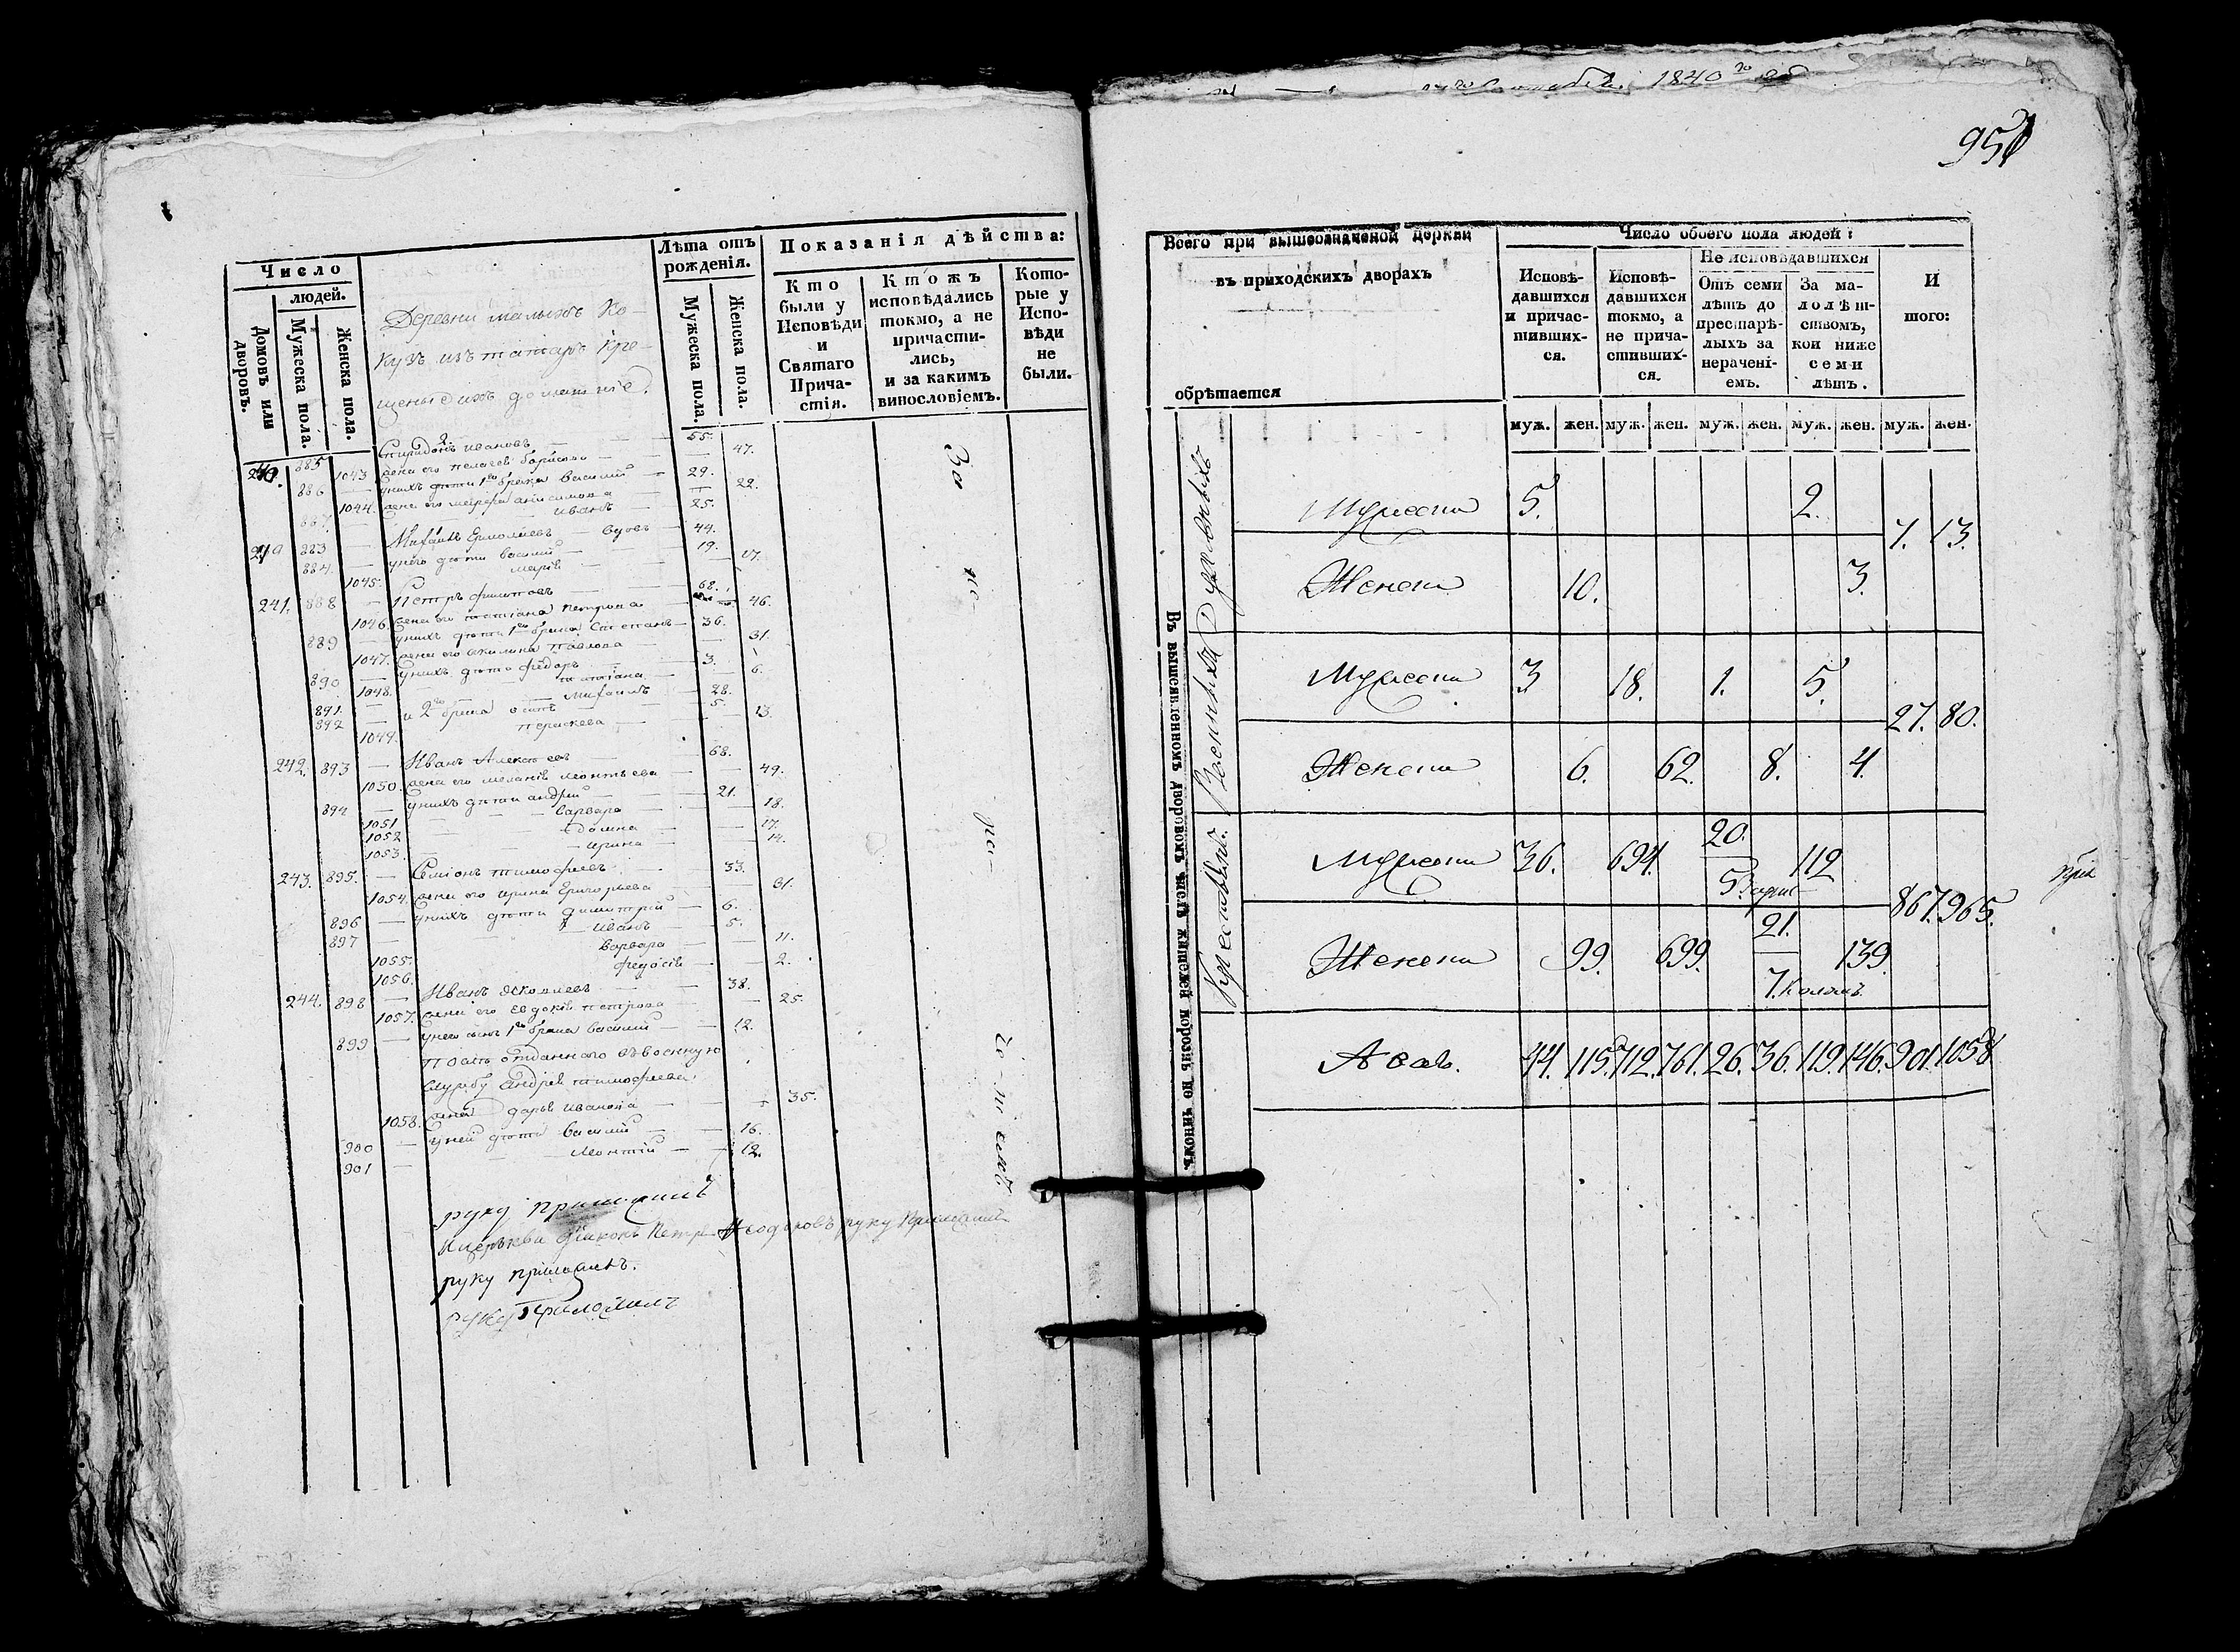 Число
людей.
Домовъ или дворовъ.
Мужеска пола.
Женска пола.
Деревни малыхъ Ко-
кузъ изъ татаръ кре-
щеныхъ
Лѣта отъ рожденія.
Мужеска пола.
Женска пола.
Показанія дѣйства:
Кто были у Исповѣди и Святаго Прича- стія.
Ктожъ исповѣдались токмо, а не причасти- лись, и за какимъ винословіемъ.
Кото- рые у Испо- вѣди не были.
885 Спиридонъ Ивановъ 55.
1043 жена его Пелагея Борисова 47.
886 у нихъ дѣти 1го брака Василий 29.
1044. жена его Анисимова 22.
887. Иванъ 25.
883 Михаилъ Ермолаевъ вдовъ 44.
884. у него дѣти Василий 19.
1045. Марія 17.
241. 888 Петръ Филиповъ 68.
1046. жена его Татіана Петрова 46.
889 у нихъ дѣти 1го брака Степанъ 36.
1047. жена его Акилина Павлова 31.
890 у нихъ дѣти Федоръ 3.
1048. Татіана 6.
891. и 2го брака Михаилъ 28.
892 Осипъ 5.
1049. Параскева 13.
242. 893 Иванъ Алексѣевъ 68.
1050. жена его Меланія Леонтьева 49.
894 у нихъ дѣти Андрей 21.
1051 Варвара 18.
1052 Домна 17.
1053. Ирина 14.
243. 895. Семіонъ Тимофѣевъ 33.
1054. жена его Ирина Григорьева 31.
896 у нихъ дѣти Димитрій 6.
897 Иванъ 5.
1055. Варвара 11.
1056. Федосія 2.
244. 898 Иванъ Яковлевъ 38.
1057. жена его Евдокія Петрова 25.
899 у него сынъ 1го брака Василий 12.
отданнаго въ военную
службу Андрея Тимофѣева
1058. жена Дарья Иванова 35.
900 у ней дѣти Василий 16.
901 Леонтій 12.
За
не-
ра-
че-ніемъ
руку приложилъ
діаконъ Петръ руку приложилъ
руку приложилъ.
руку приложилъ
1840го
951
Всего при вышеозначеной церкви
въ приходскихъ дворахъ
обрѣтается
Число обоего пола людей:
Исповѣ- давшихся и причас- тивших- ся.
Исповѣ- давшихся токмо, а не прича- стивших- ся.
Не исповѣдавшихся
Отъ семи лѣтъ до престарѣ- лыхъ за нерачені- емъ.
За ма- лолѣт- ствомъ, кои ниже семи лѣтъ.
И того:
муж. жен. муж. жен. муж. жен. муж. жен. муж. жен.
Въ вышеявленномъ дворовомъ числѣ жителей порознь по чиномъ.
Духовныхъ
Мужеска 5. 2.
7. 13.
Женска 10. 3.
Военныхъ
Мужеска 3 18. 1. 5.
27. 80.
Женска 6. 62. 8. 4.
Крестьянъ.
Мужеска 36. 691. 20. 5. 112
867. 965.
Женска 99. 699. 21. 7. 139.
А всехъ. 44. 115. 712. 761. 26. 36. 119. 146. 901. 1058